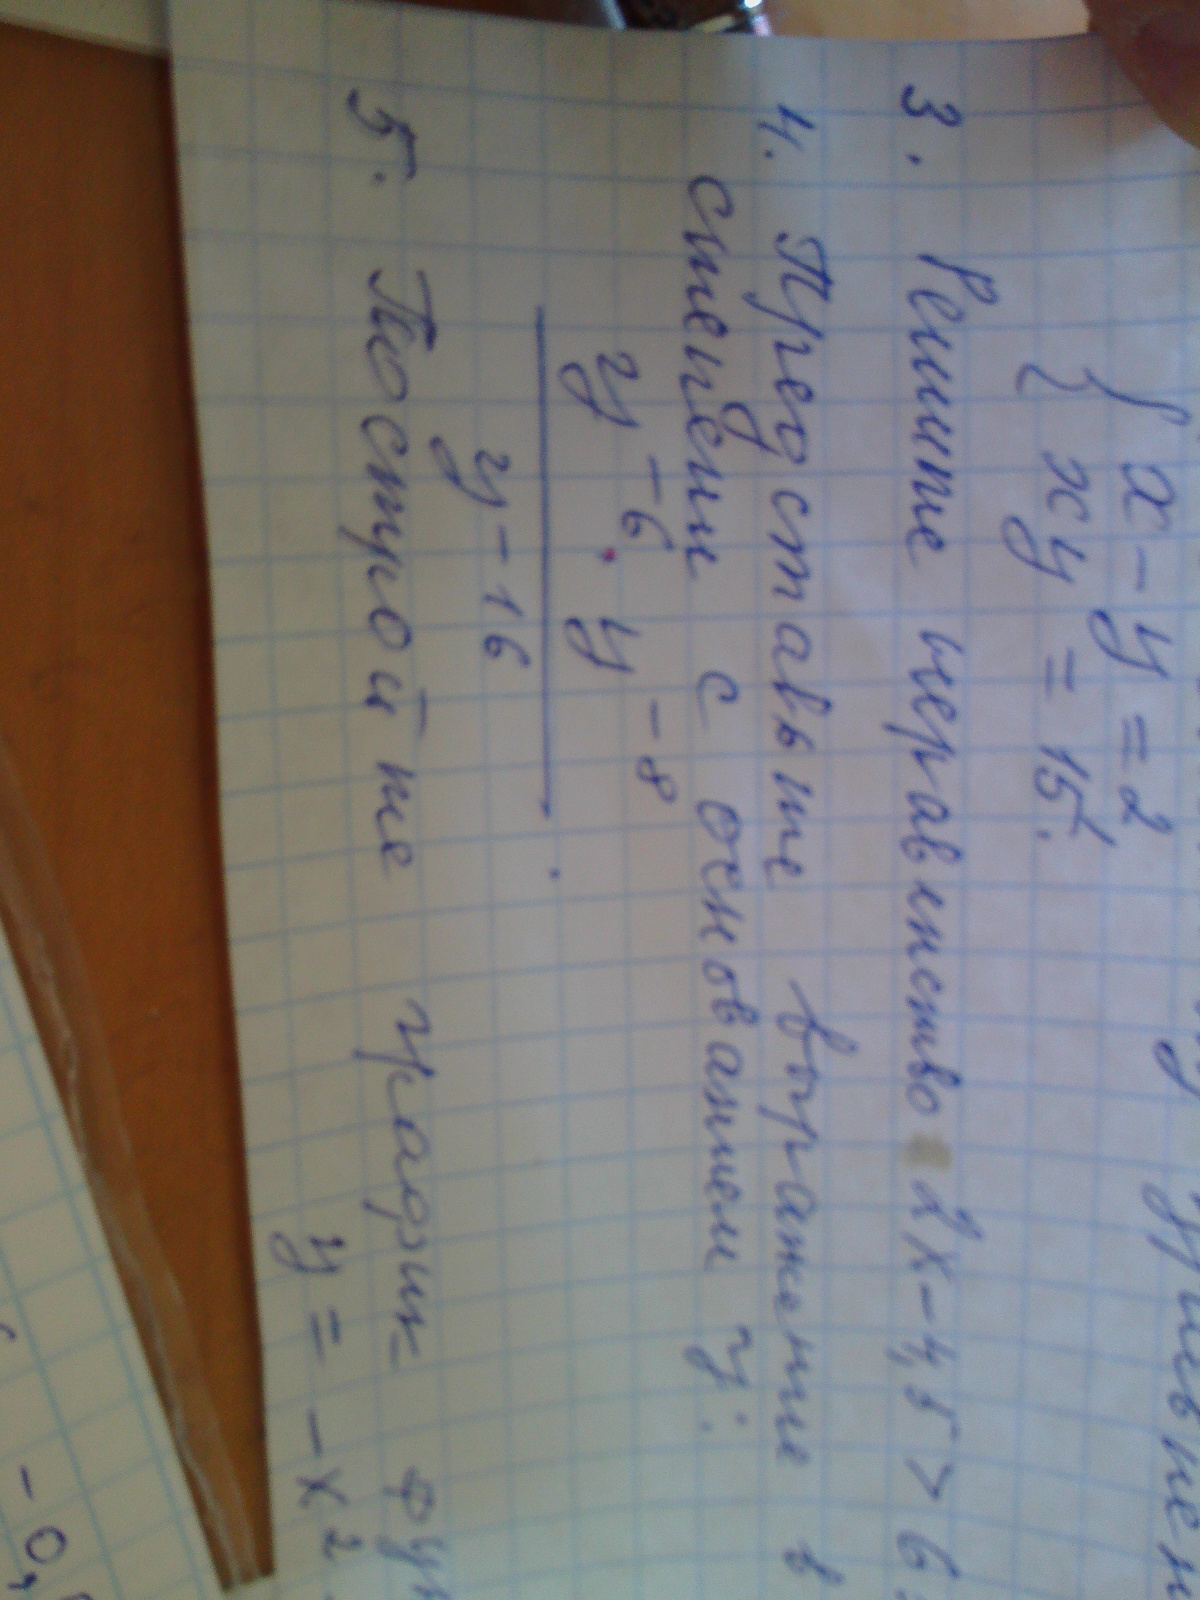 { x - y = 2
xy = 15.
3. Решите неравенство 2x - 4,5 > 6
4. Представьте выражение в
степени с основанием y:
y⁻⁶ · y⁻⁸
y⁻¹⁶
5. Постройте график
y = -x²
-0,